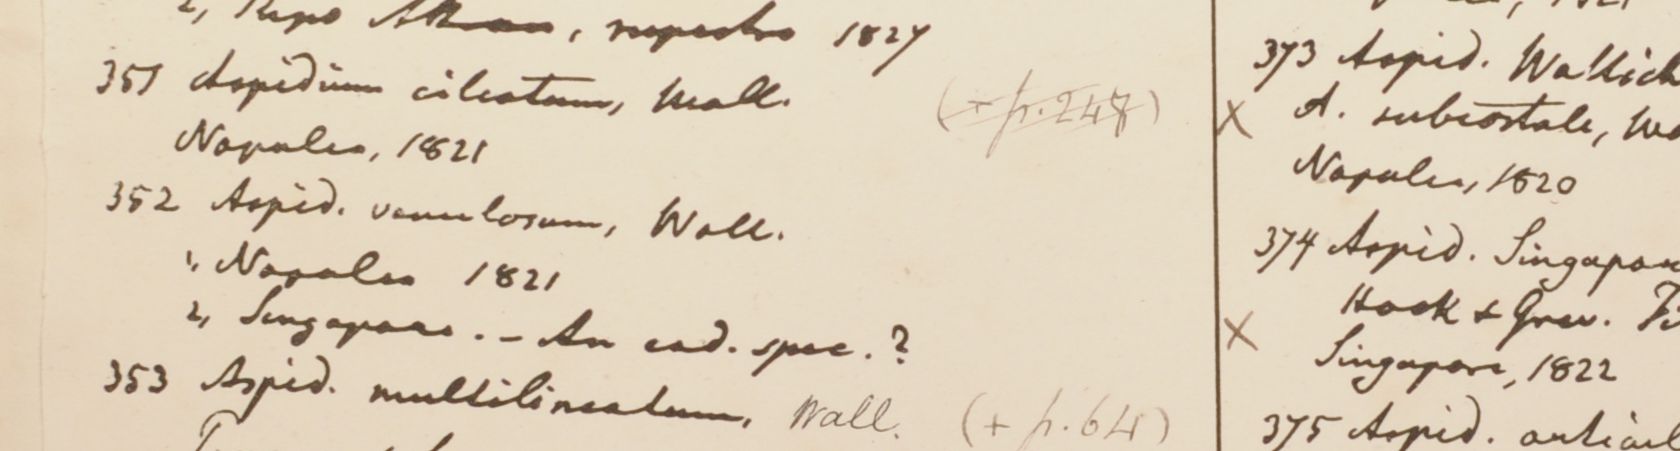 2, Ripa Attran, rupestre 1827
351 Aspidium ciliatum, Wall. (+ p. 247)
Napalia, 1821
352 Aspid. venulosum, Wall.
1, Napalia 1821
2, Singapore. - An ead. spec.?
353 Aspid. multilineatum, Wall. (+ p. 64)
1821
373 Aspid. Wallich
X A. subcostale, Wa
Napalia, 1820
374 Aspid. Singapor
Hook & Grev.
X Singapore, 1822
375 Aspid.